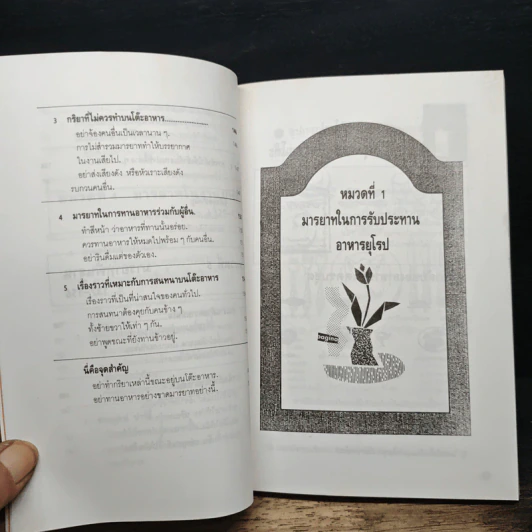 3 กริยาที่ไม่ควรทำบนโต๊ะอาหาร
อย่าจ้องคนอื่นเป็นเวลานาน ๆ.
การไม่สำรวมมารยาททำให้บรรยากาศ
ในงานเสียไป.
อย่าส่งเสียงดัง หรือหัวเราะเสียงดัง
รบกวนคนอื่น.
4 มารยาทในการทานอาหารร่วมกับผู้อื่น.
ทำสีหน้า ว่าอาหารที่ทานนั้นอร่อย.
ควรทานอาหารให้หมดไปพร้อม ๆ กับคนอื่น.
อย่ารินดื่มแต่ของตัวเอง.
5 เรื่องราวที่เหมาะกับการสนทนาบนโต๊ะอาหาร
เรื่องราวที่เป็นที่น่าสนใจของคนทั่วไป.
การสนทนาต้องคุยกับคนข้าง ๆ
ทั้งซ้ายขวาให้เท่า ๆ กัน.
อย่าพูดขณะที่ยังทานข้าวอยู่.
นี่คือจุดสำคัญ
อย่าทำกริยาเหล่านี้ขณะอยู่บนโต๊ะอาหาร.
อย่าทานอาหารอย่างขาดมารยาทอย่างนี้.
หมวดที่ 1
มารยาทในการรับประทาน
อาหารยุโรป
pagino